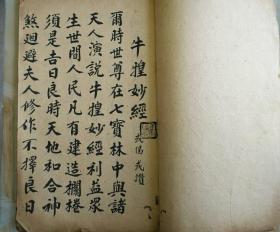 牛揘妙經
爾時世尊在七寳林中與諸
天人演説牛揘妙經利益衆
生世間人民凡有建造欄棬
須是吉日良時天地和合神
煞廻避夫人修作不擇良日